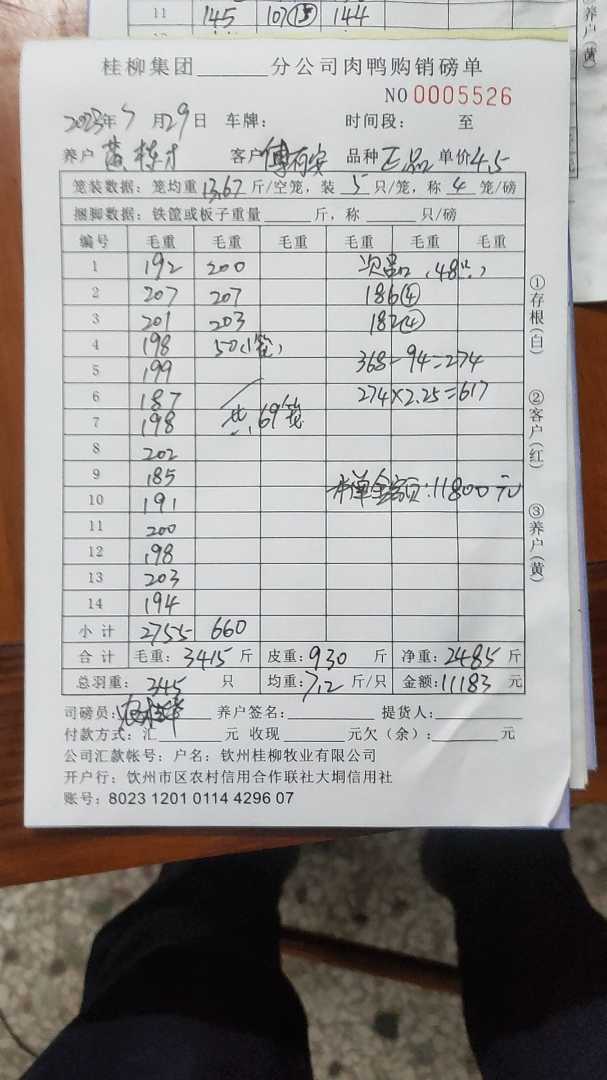 11 145 107(15) 144
养户(黄)
桂柳集团______分公司肉鸭购销磅单
NO 0005526
2023年7月29日 车牌: 时间段: 至
养户 黄栋才 客户 傅有实 品种 正品 单价 4.5
笼装数据: 笼均重 13.67 斤/空笼, 装 5 只/笼, 称 4 笼/磅
捆脚数据: 铁筐或板子重量______斤, 称______只/磅
编号 毛重 毛重 毛重 毛重 毛重 毛重
1 192 200 次品 (48只)
2 207 207 186④
3 201 203 182④
4 198 50(1笼)
5 199 368-94=274
6 187 274×2.25=617
7 198 共:69笼
8 202
9 185
10 191 本单金额:11800元
11 200
12 198
13 203
14 194
小计 2755 660
合计 毛重: 3415 斤 皮重: 930 斤 净重: 2485 斤
总羽重: 345 只 均重: 7.2 斤/只 金额: 11183 元
司磅员: 养户签名: 提货人:
付款方式: 汇______元 收现______元欠(余):______元
公司汇款帐号: 户名: 钦州桂柳牧业有限公司
开户行: 钦州市区农村信用合作联社大垌信用社
账号: 8023 1201 0114 4296 07
①存根(白)
②客户(红)
③养户(黄)